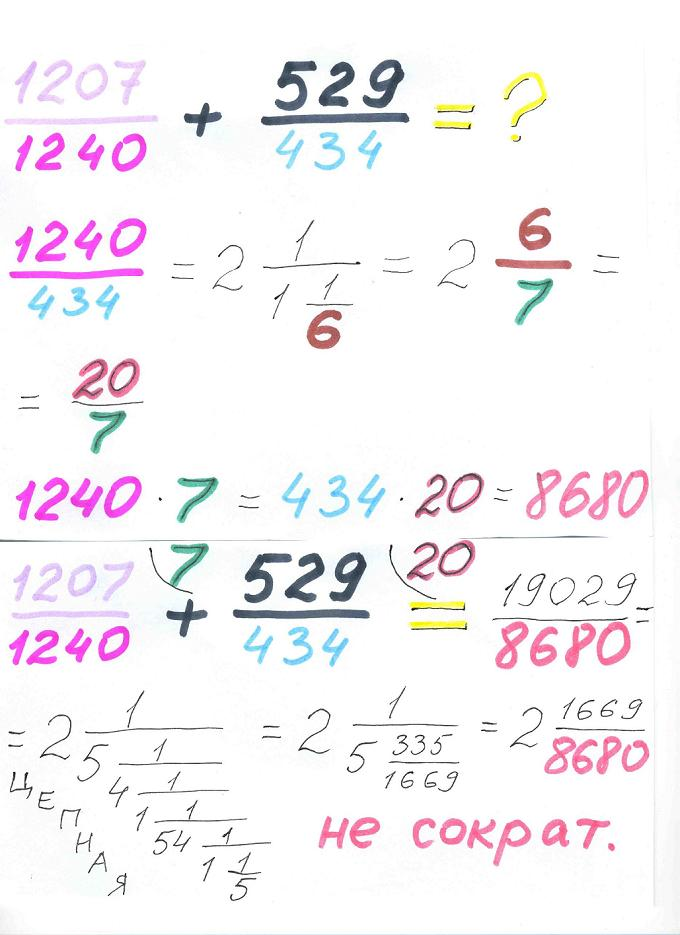 1207/1240 + 529/434 = ?
1240/434 = 2 1/(1 1/6) = 2 6/7 =
= 20/7
1240 · 7 = 434 · 20 = 8680
1207/1240 (7 + 529/434 (20 = 19029/8680 =
= 2 1/(5 1/(4 1/(1 1/(54 1/(1 1/5))))) = 2 1/(5 335/1669) = 2 1669/8680
ЦЕПНАЯ
не сократ.